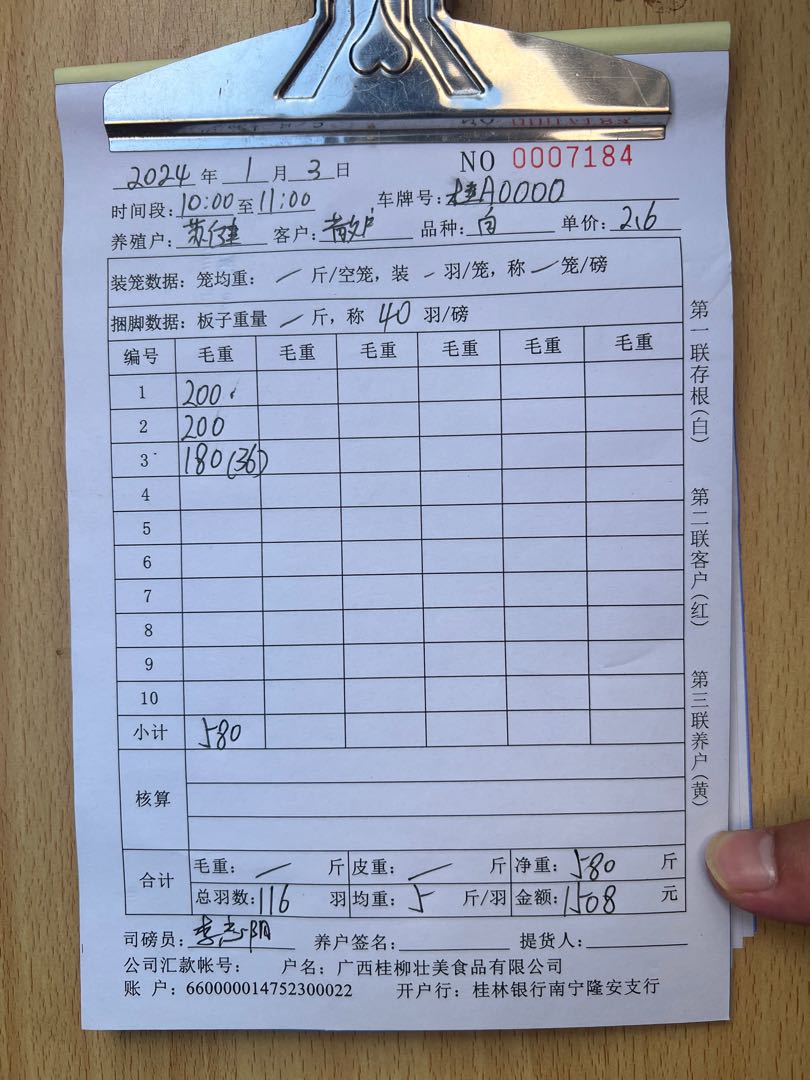 NO 0007184
2024 年 1 月 3 日
时间段: 10:00 至 11:00 车牌号: 桂A0000
养殖户: 苏健 客户: 散户 品种: 白 单价: 2.6
装笼数据: 笼均重: / 斤/空笼, 装 - 羽/笼, 称 / 笼/磅
捆脚数据: 板子重量 / 斤, 称 40 羽/磅
编号 毛重 毛重 毛重 毛重 毛重 毛重
1 200
2 200
3 180(36)
4
5
6
7
8
9
10
小计 580
核算
合计 毛重: / 斤 皮重: / 斤 净重: 580 斤
总羽数: 116 羽 均重: 5 斤/羽 金额: 1508 元
司磅员: 李志阳 养户签名: 提货人:
公司汇款帐号: 户名: 广西桂柳壮美食品有限公司
账 户: 660000014752300022 开户行: 桂林银行南宁隆安支行
第一联存根(白)
第二联客户(红)
第三联养户(黄)